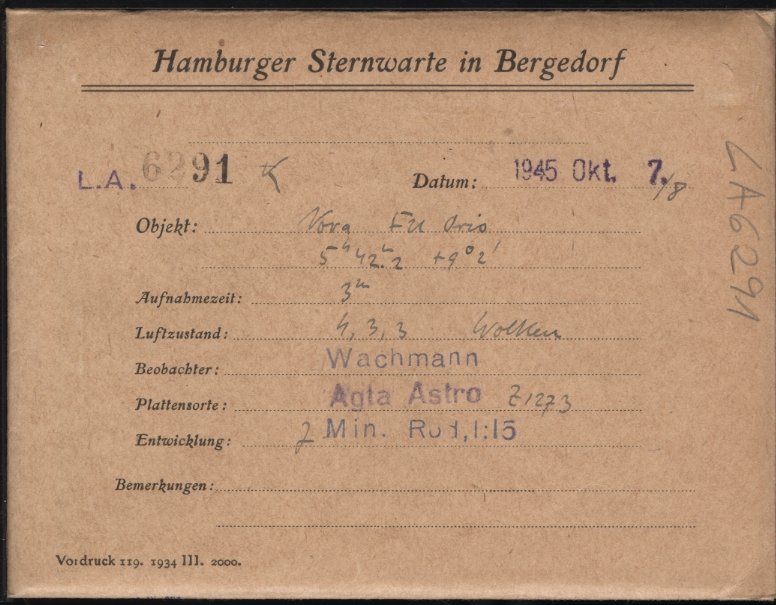 Hamburger Sternwarte in Bergedorf
L.A. 6291
Datum: 1945 Okt. 7./8
Objekt: Nova FU Orio
5ʰ42ᵐ.2 +9°2'
Aufnahmezeit: 3ᵐ
Luftzustand: 4, 3, 3 Wolken
Beobachter: Wachmann
Plattensorte: Agfa Astro Z1273
Entwicklung: 7 Min. Rod, 1:15
Bemerkungen:
Vordruck 119. 1934 III. 2000.
LA6291